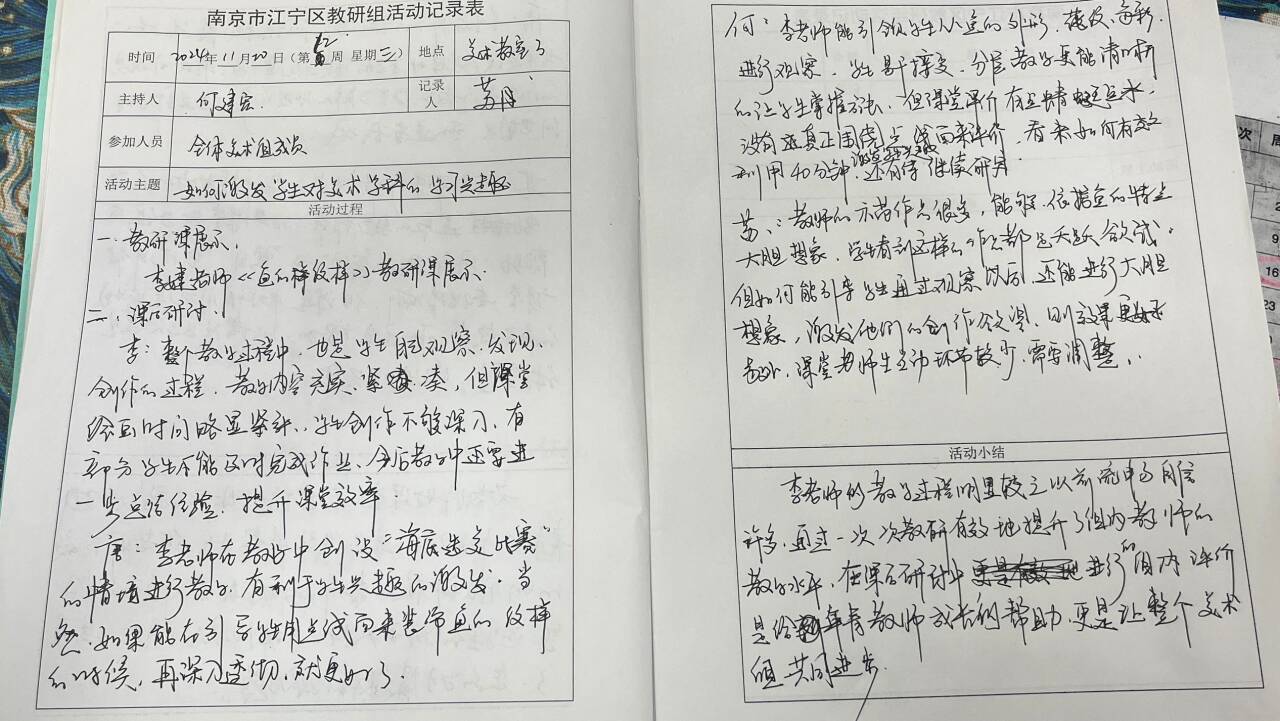 南京市江宁区教研组活动记录表
时间 2024年11月20日(第 周 星期三) 地点 美术教室3
主持人 何建 记录人 苏丹
参加人员 全体美术组成员
活动主题 如何激发学生对美术学科的学习兴趣
活动过程
一、教研课展示、
李婕老师《鱼的样纹样》教研课展示.
二、课后研讨.
李:整个教学过程中,也是学生自己观察、发现、
创作的过程、教学内容充实、紧凑,但课堂
绘画时间略显紧张、学生创作不够深入、有
部分学生不能及时完成作业、今后教学中还需进
一步总结经验,提升课堂效率.
唐:李老师在教学中创设“海底选美比赛”
的情境进行教学,有利于学生兴趣的激发.当
然、如果能在引导学生用点线面来装饰鱼的纹样
的时候,再深入透彻,就更好了.
何:李老师能引领学生从鱼的外形、花纹、色彩、
进行观察,学生易于接受,分层教学更能清晰
的让学生掌握方法、但课堂评价有点蜻蜓点水,
没有真正围绕点线面来评价,看来如何有效
利用40分钟,还有待继续研究.
苏:教师的示范作品很多,能够依据鱼的特点
大胆想象,学生看到这样的作品都跃跃欲试.
但如何能引导学生通过观察以后,还能进行大胆
想象,激发他们的创作欲望,则效果更好
另外,课堂师生互动环节较少,需要调整.
次
周
9
16
23
30
活动小结
李老师的教学过程明显较之以前流畅自信
许多,通过一次次教研有效地提升了组内教师的
教学水平,在课后研讨中进行的组内评价
是给青年教师成长的帮助,更是让整个美术
组共同进步.